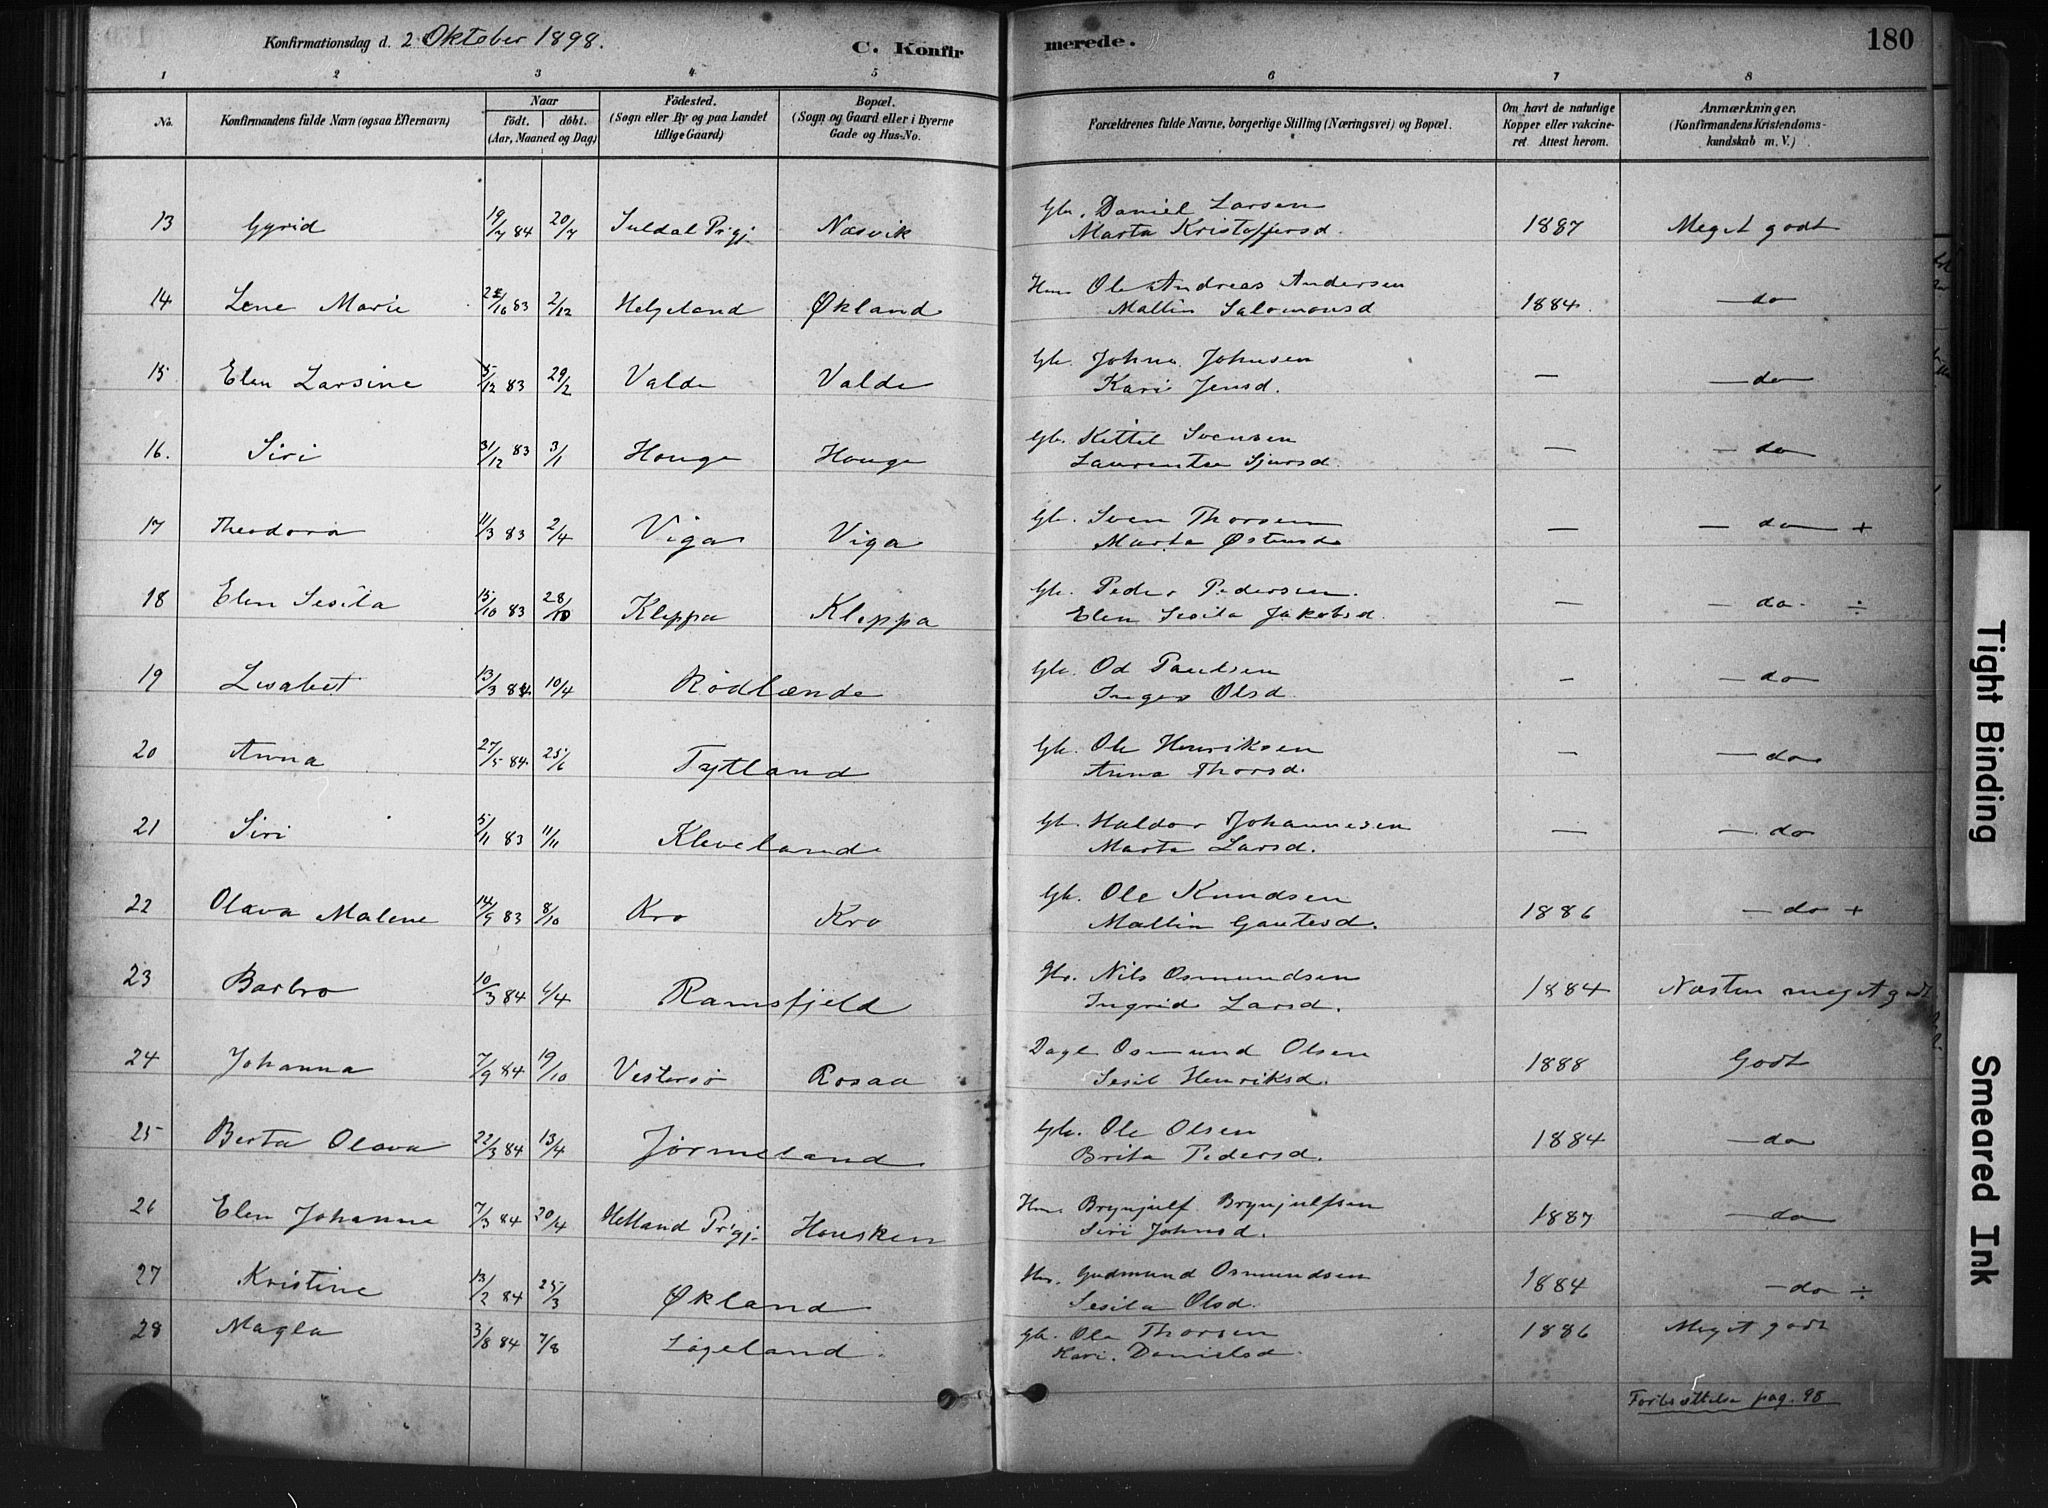 Konfirmationsdag d. 2 Oktober 1898.
C. Konfirmerede.
180
1 2 3 4 5 6 7 8
No.
Konfirmandens fulde Navn (ogsaa Efternavn)
Naar
födt. döbt.
(Aar, Maaned og Dag)
Födested.
(Sogn eller By og paa Landet
tillige Gaard)
Bopæl.
(Sogn og Gaard eller i Byerne
Gade og Hus-No.
Forældrenes fulde Navne, borgerlige Stilling (Næringsvei) og Bopæl.
Om havt de naturlige
Kopper eller vakcine-
ret Attest herom.
Anmærkninger.
(Konfirmandens Kristendoms-
kundskab m. V.)
13 Gyrid 19/7 84 20/7 Suldal Prgj. Næsvik Gbr. Daniel Larsen 1887 Meget godt
Marta Kristoffersd.
14 Lene Marie 83 2/12 Helgeland Økland Hm. Ole Andreas Andersen 1884 — do
Mallin Salomonsd
15 Elen Larsine 5/12 83 29/2 Valde Valde Gb. Johne Johnsen — — do
Kari Jensd.
16. Siri 31/12 83 3/1 Houge Houge Gb. Kittel Svensen — — do
Laurentse Sjursd.
17 Theodora 11/3 83 2/4 Viga Viga Gb. Sven Thorsen — — do +
Marta Østensd.
18 Elen Sesila 15/10 83 28/10 Kleppa Kleppa Gb. Peder Pedersen — — do. ÷
Elen Sesila Jakobsd.
19 Lisabet 13/3 84 10/4 Rödlænde Gb. Od Paulsen — — do
Inger Olsd.
20 Anna 27/5 84 25/6 Tytland Gb. Ole Henriksen — — do
Anna Thorsd.
21 Siri 5/11 83 11/11 Kleveland Gb. Haldor Johannesen — — do
Marta Larsd.
22 Olava Malene 14/9 83 8/10 Kro Kro Gb. Ole Knudsen 1886 — do +
Mallin Gautesd.
23 Barbro 10/3 84 4/4 Ramsfjeld Gbr. Nils Osmundsen 1884 Næsten meget godt
Ingrid Larsd.
24 Johanna 7/9 84 19/10 Vestersö Rosaa Dagl Osmund Olsen 1888 Godt
Sesil Henriksd.
25 Berta Olava 22/3 84 13/4 Jørmeland Gb. Ole Olsen 1884 — do
Brita Pedersd.
26 Elen Johanne 7/3 84 20/4 Hetland Prgj. Housken Hm. Brynjulf Brynjulfsen 1887 — do
Siri Johnsd.
27 Kristine 13/2 84 25/3 Økland Hm. Gudmund Osmundsen 1884 — do ÷
Sesila Olsd.
28 Magla 3/8 84 7/8 Løgeland Gb. Ole Thorsen 1886 Meget godt
Kari Danielsd.
Fortsættelse pag. 95
Tight Binding
Smeared Ink